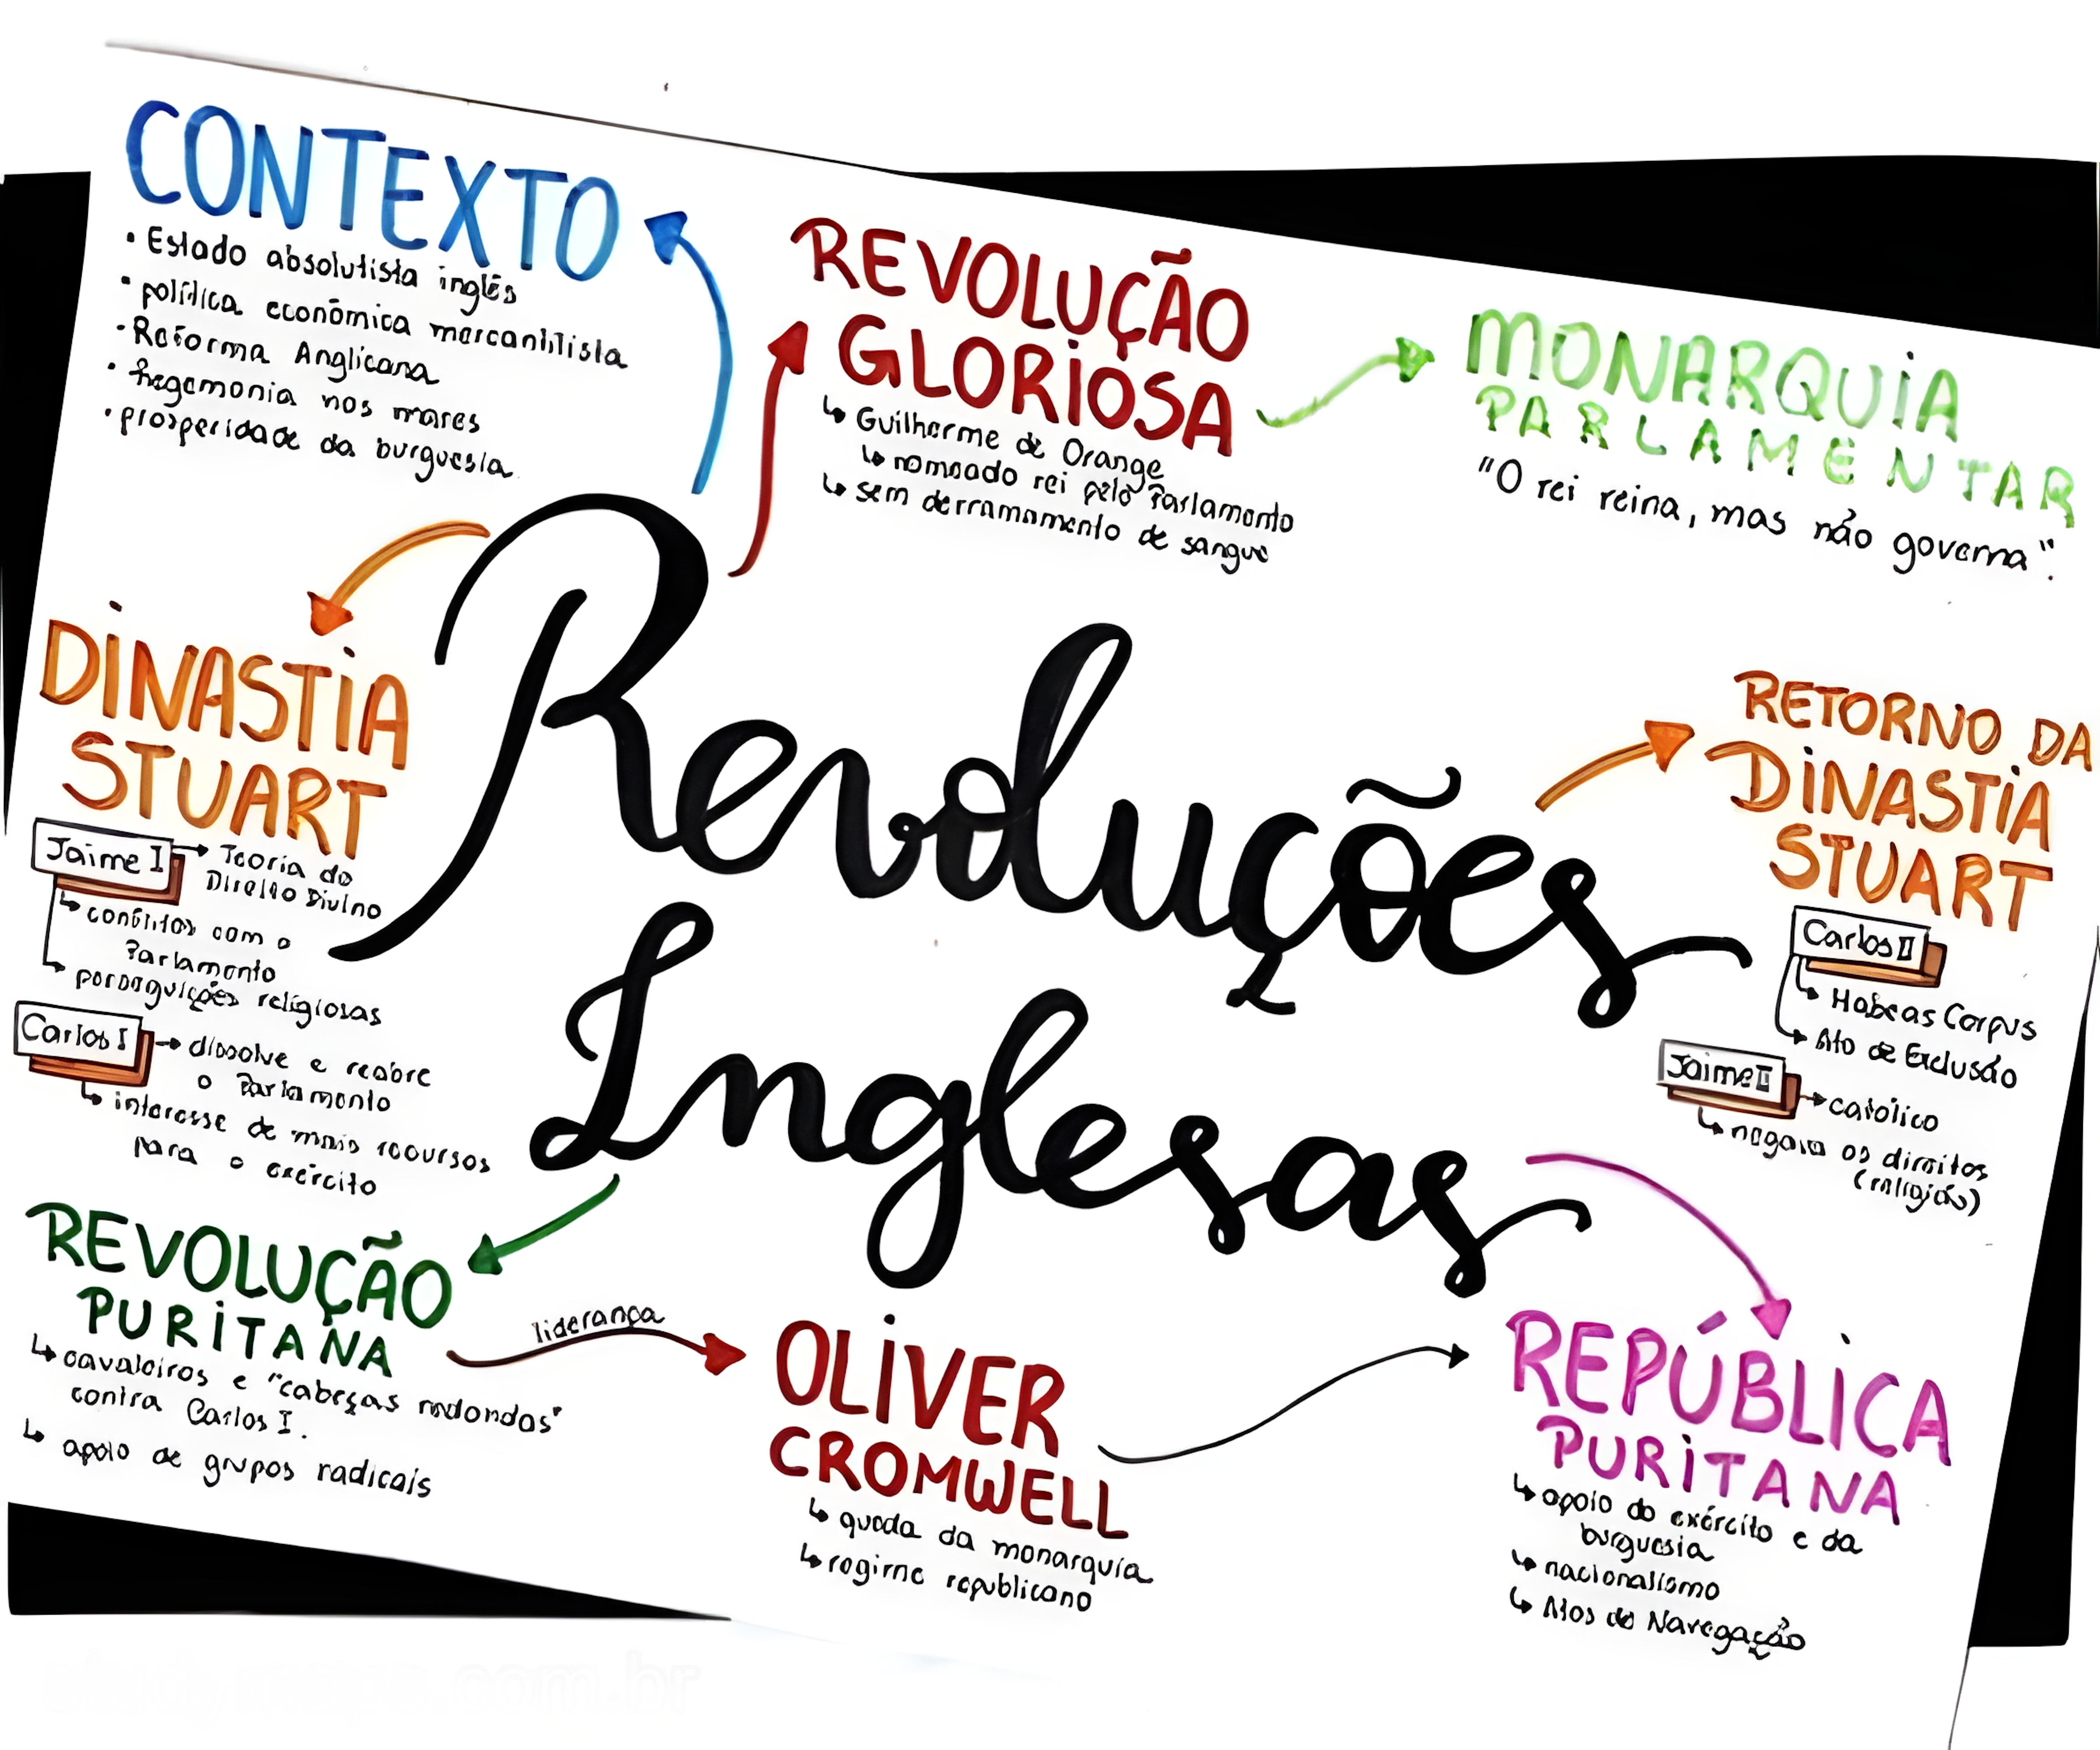 CONTEXTO
• Estado absolutista inglês
• política econômica mercantilista
• Reforma Anglicana
• hegemonia nos mares
• prosperidade da burguesia
REVOLUÇÃO
GLORIOSA
↳ Guilherme de Orange
↳ nomeado rei pelo Parlamento
↳ sem derramamento de sangue
MONARQUIA
PARLAMENTAR
"O rei reina, mas não governa".
DINASTIA
STUART
Jaime I → Teoria do
Direito Divino
↳ conflitos com o
Parlamento
↳ perseguições religiosas
Carlos I → dissolve e reabre
o Parlamento
↳ interesse de mais recursos
para o exército
Revoluções
Inglesas
RETORNO DA
DINASTIA
STUART
Carlos II
↳ Habeas Corpus
↳ Ato de Exclusão
Jaime II → católico
↳ negava os direitos
(religião)
REVOLUÇÃO
PURITANA
↳ cavaleiros e "cabeças redondas"
contra Carlos I.
↳ apoio de grupos radicais
liderança
OLIVER
CROMWELL
↳ queda da monarquia
↳ regime republicano
REPÚBLICA
PURITANA
↳ apoio do exército e da
burguesia
↳ nacionalismo
↳ Atos de Navegação
.com.br